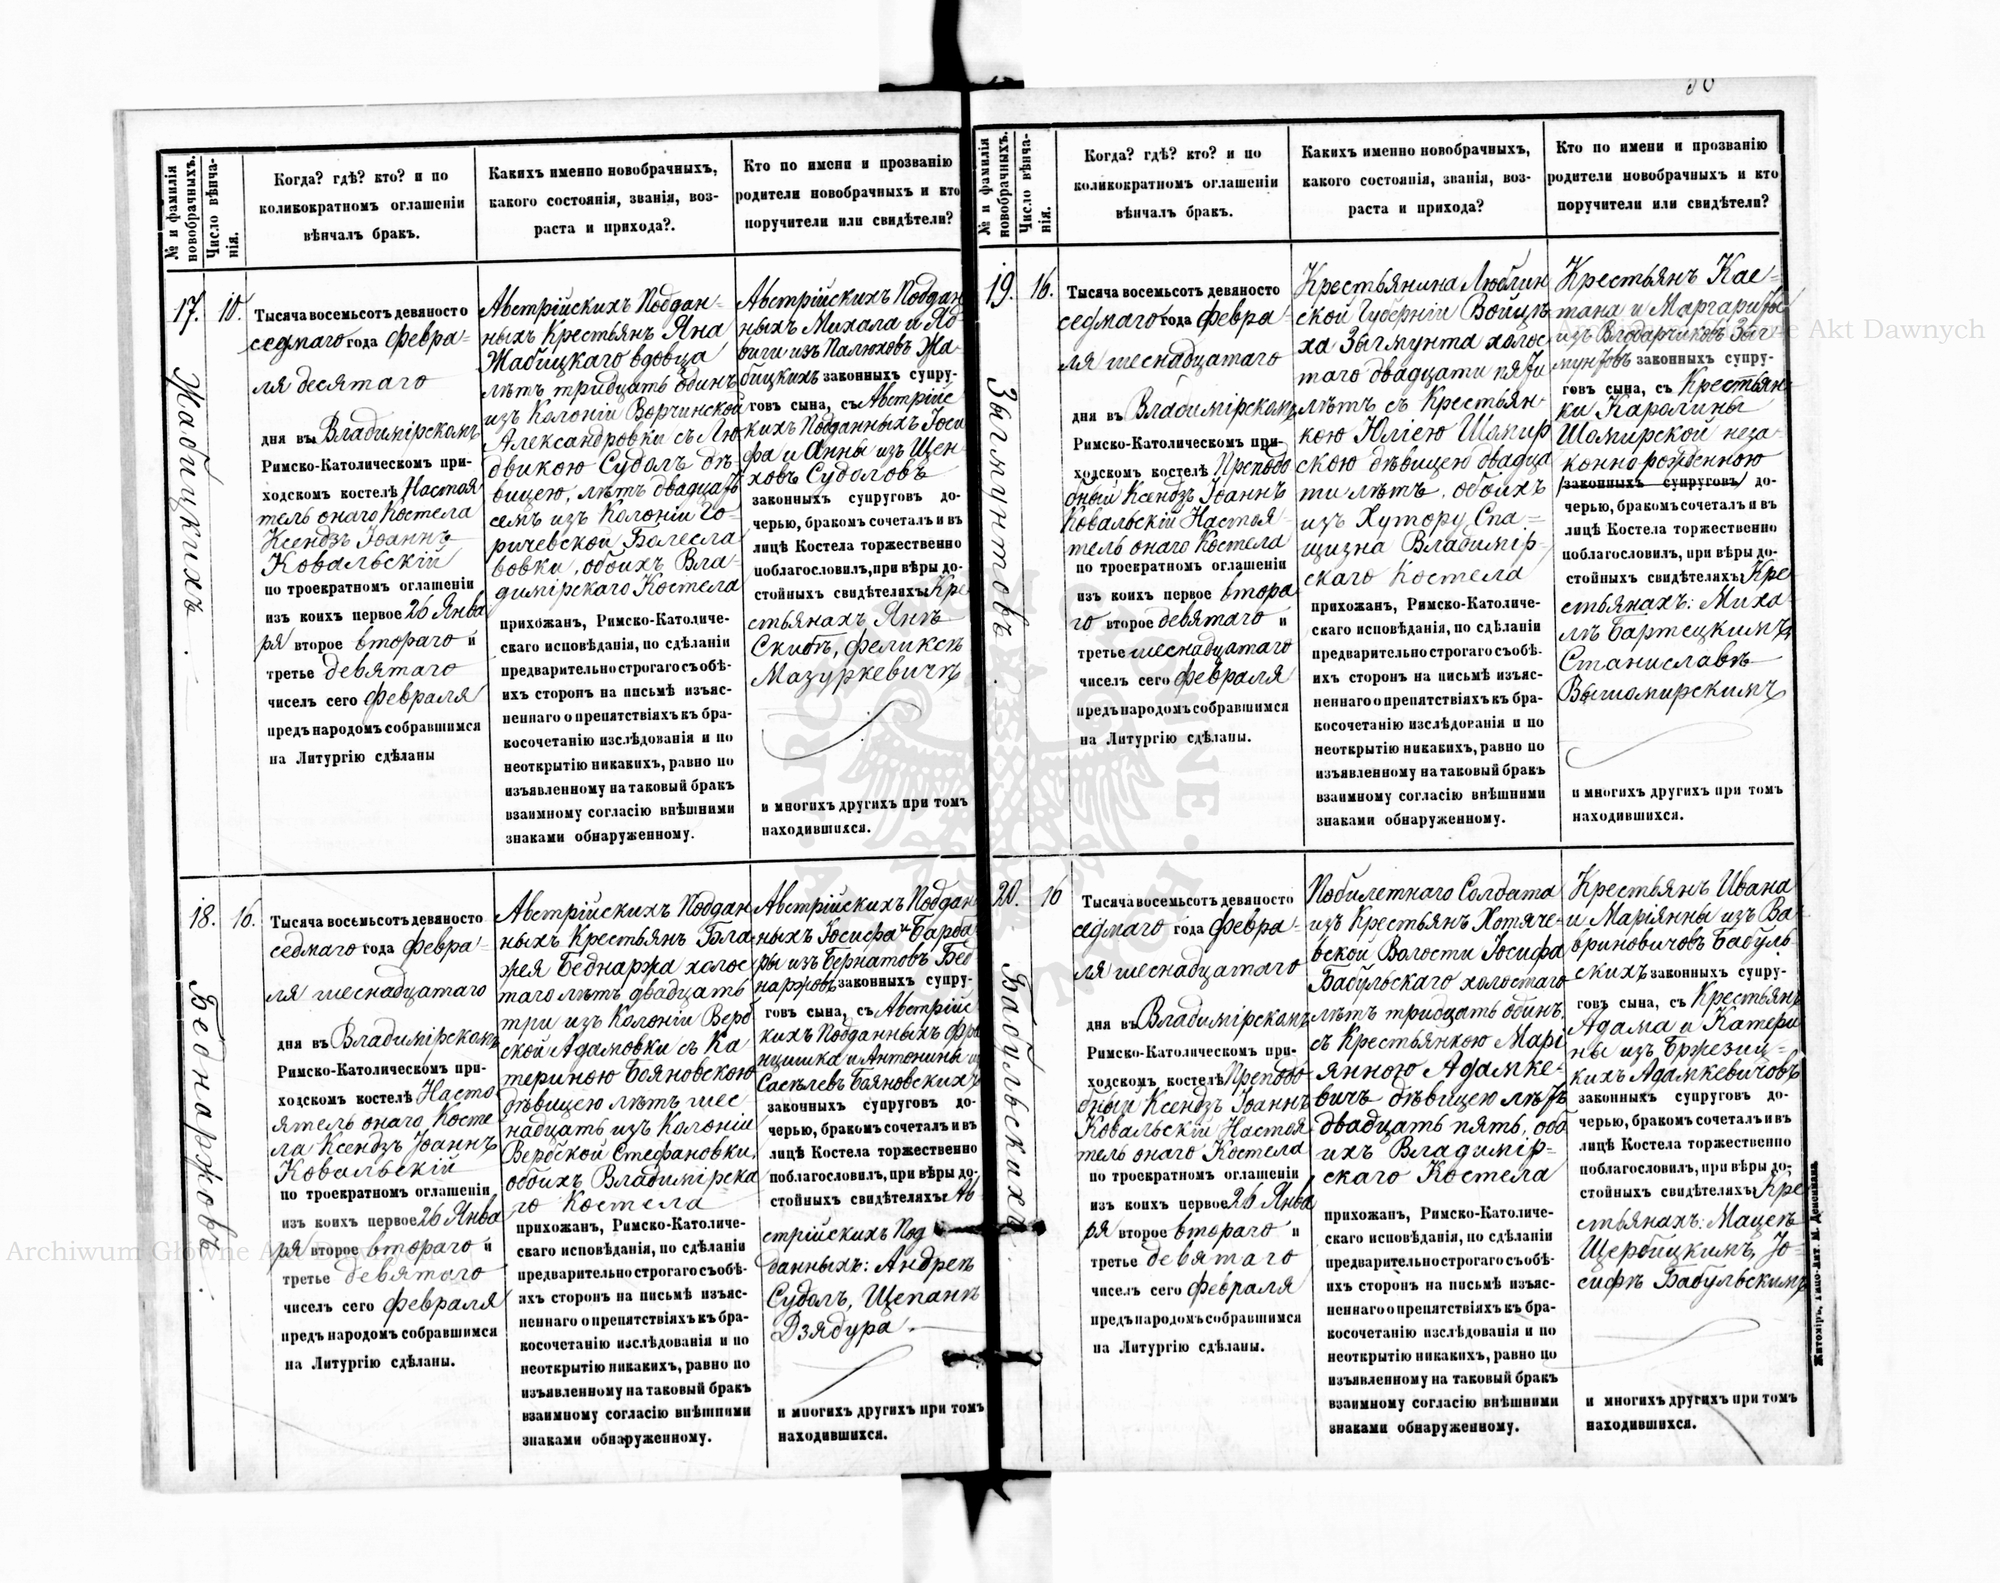 30
№ и фамилія новобрачныхъ.
Число вѣнча-
нія.
Когда? гдѣ? кто? и по
коликократномъ оглашеніи
вѣнчалъ бракъ.
Какихъ именно новобрачныхъ,
какого состоянія, званія, воз-
раста и прихода?.
Кто по имени и прозванію
родители новобрачныхъ и кто
поручители или свидѣтели?
17.
10.
Жабицкихъ.
Тысяча восемьсотъ девяносто
седмаго года Февра-
ля десятаго
дня въ Владимірскомъ
Римско-Католическомъ при-
ходскомъ костелѣ Настоя
тель онаго Костела
Ксендзъ Іоаннъ
Ковальскій
по троекратномъ оглашеніи
изъ коихъ первое 26 Янва
ря второе втораго и
третье девятаго
чиселъ сего Февраля
предъ народомъ собравшимся
на Литургію сдѣланы
Австрійскихъ Поддан-
ныхъ Крестьянъ Яна
Жабицкаго вдовца
лѣтъ тридцать одинъ
изъ Колоніи Ворчинской
Александровки съ Лю
двикою Судолъ дѣ-
вицею, лѣтъ двадцать
семъ изъ Колоніи Го-
ричевской Болесла
вовки, обоихъ Вла-
димірскаго Костела
прихожан, Римско-Католиче-
скаго исповѣданія, по сдѣланіи
предварительно строгаго съ обѣ-
ихъ сторонъ на письмѣ изъяс-
неннаго о препятствіяхъ къ бра-
косочетанію изслѣдованія и по
неоткрытію никакихъ, равно по
изъявленному на таковый бракъ
взаимному согласію внѣшними
знаками обнаруженному.
Австрійскихъ Поддан
ныхъ Михала и Яд
виги изъ Палюховъ Жа
бицкихъ законныхъ супру-
говъ сына, съ Австрійс
кихъ Подданныхъ Іоси
фа и Анны изъ Щен-
ховъ Судоловъ
законныхъ супруговъ до-
черью, бракомъ сочеталъ и въ
лицѣ Костела торжественно
поблагословилъ, при вѣры до-
стойныхъ свидѣтеляхъ: Кре
стьянахъ Янѣ
Скибѣ, Феликсѣ
Мазуркевичѣ
и многихъ другихъ при томъ
находившихся.
18.
16.
Беднаржовъ.
Тысяча восемьсотъ девяносто
седмаго года Февра-
ля шеснадцатаго
дня въ Владимірскомъ
Римско-Католическомъ при-
ходскомъ костелѣ Насто
ятель онаго Косте
ла Ксендзъ Іоаннъ
Ковальскій
по троекратномъ оглашеніи
изъ коихъ первое 26 Янва
ря второе втораго и
третье девятаго
чиселъ сего Февраля
предъ народомъ собравшимся
на Литургію сдѣланы.
Австрійскихъ Поддан
ныхъ Крестьянъ Бла-
жея Беднаржа холос
таго лѣтъ двадцать
три изъ Колоніи Верб
ской Адамовки съ Ка
териною Бояновскою
дѣвицею лѣтъ шес
надцать изъ Колоніи
Вербской Стефановки,
обоихъ Владимірска
го Костела
прихожан, Римско-Католиче-
скаго исповѣданія, по сдѣланіи
предварительно строгаго съ обѣ-
ихъ сторонъ на письмѣ изъяс-
неннаго о препятствіяхъ къ бра-
косочетанію изслѣдованія и по
неоткрытію никакихъ, равно по
изъявленному на таковый бракъ
взаимному согласію внѣшними
знаками обнаруженному.
Австрійскихъ Поддан
ныхъ Іосифа и Барба
ры изъ Бернатовъ Бед
наржовъ законныхъ супру-
говъ сына, съ Австрійс
кихъ Подданныхъ Фра
нцишка и Антонины изъ
Бояновскихъ
законныхъ супруговъ до-
черью, бракомъ сочеталъ и въ
лицѣ Костела торжественно
поблагословилъ, при вѣры до-
стойныхъ свидѣтеляхъ: Ав-
стрійскихъ Под
данныхъ: Андреѣ
Судолъ, Щепанѣ
Дзядура.
и многихъ другихъ при томъ
находившихся.
№ и фамилія новобрачныхъ.
Число вѣнча-
нія.
Когда? гдѣ? кто? и по
коликократномъ оглашеніи
вѣнчалъ бракъ.
Какихъ именно новобрачныхъ,
какого состоянія, званія, воз-
раста и прихода?
Кто по имени и прозванію
родители новобрачныхъ и кто
поручители или свидѣтели?
19.
16.
Зыгмунтовъ.
Тысяча восемьсотъ девяносто
седмаго года Февра-
ля шеснадцатаго
дня въ Владимірскомъ
Римско-Католическомъ при-
ходскомъ костелѣ Преподо
бный Ксендзъ Іоаннъ
Ковальскій Настоя-
тель онаго Костела
по троекратномъ оглашеніи
изъ коихъ первое втора
го второе девятаго и
третье шеснадцатаго
чиселъ сего Февраля
предъ народомъ собравшимся
на Литургію сдѣланы.
Крестьянина Люблин
ской Губерніи Войцѣ
ха Зыгмунта холос
таго двадцати пяти
лѣтъ съ Крестьян-
кою Юліею Шамир
скою дѣвицею двадца
ти лѣтъ, обоихъ
изъ Хутору Спа-
щизна Владимір-
скаго Костела
прихожан, Римско-Католиче-
скаго исповѣданія, по сдѣланіи
предварительно строгаго съ обѣ-
ихъ сторонъ на письмѣ изъяс-
неннаго о препятствіяхъ къ бра-
косочетанію изслѣдованія и по
неоткрытію никакихъ, равно по
изъявленному на таковый бракъ
взаимному согласію внѣшними
знаками обнаруженному.
Крестьянъ Кае-
тана и Маргариты
изъ Влодарчиковъ Зыг
мунтовъ законныхъ супру-
говъ сына, съ Крестьян-
ки Каролины
Шамирской неза-
коннорожденною
законныхъ супруговъ до-
черью, бракомъ сочеталъ и въ
лицѣ Костела торжественно
поблагословилъ, при вѣры до-
стойныхъ свидѣтеляхъ: Кре
стьянахъ: Миха-
лѣ Бартецкимъ,
Станиславѣ
Вышомирскимъ
и многихъ другихъ при томъ
находившихся.
20.
16
Бабульскихъ.
Тысяча восемьсотъ девяносто
седмаго года Февра-
ля шеснадцатаго
дня въ Владимірскомъ
Римско-Католическомъ при-
ходскомъ костелѣ Преподо
бный Ксендзъ Іоаннъ
Ковальскій Настоя
тель онаго Костела
по троекратномъ оглашеніи
изъ коихъ первое 26 Янва
ря второе втораго и
третье девятаго
чиселъ сего Февраля
предъ народомъ собравшимся
на Литургію сдѣланы.
Побилетнаго Солдата
изъ Крестьянъ Хотяче-
вской Волости Іосифа
Бабульскаго холостаго
лѣтъ тридцать одинъ,
съ Крестьянкою Марі
янною Адамке-
вичъ дѣвицею лѣтъ
двадцать пять, обо
ихъ Владимір-
скаго Костела
прихожан, Римско-Католиче-
скаго исповѣданія, по сдѣланіи
предварительно строгаго съ обѣ-
ихъ сторонъ на письмѣ изъяс-
неннаго о препятствіяхъ къ бра-
косочетанію изслѣдованія и по
неоткрытію никакихъ, равно по
изъявленному на таковый бракъ
взаимному согласію внѣшними
знаками обнаруженному.
Крестьянъ Ивана
и Маріянны изъ Ва-
вриновичовъ Бабуль-
скихъ законныхъ супру-
говъ сына, съ Крестьянъ
Адама и Катери
ны изъ Бржезиц-
кихъ Адамкевичовъ
законныхъ супруговъ до-
черью, бракомъ сочеталъ и въ
лицѣ Костела торжественно
поблагословилъ, при вѣры до-
стойныхъ свидѣтеляхъ: Кре
стьянахъ: Мацеѣ
Щербицкимъ, Іо-
сифѣ Бабульскимъ
и многихъ другихъ при томъ
находившихся.
Житомиръ, Типо-лит. М. Дененмана.
Archiwum Główne Akt Dawnych
Archiwum Główne Akt Dawnych